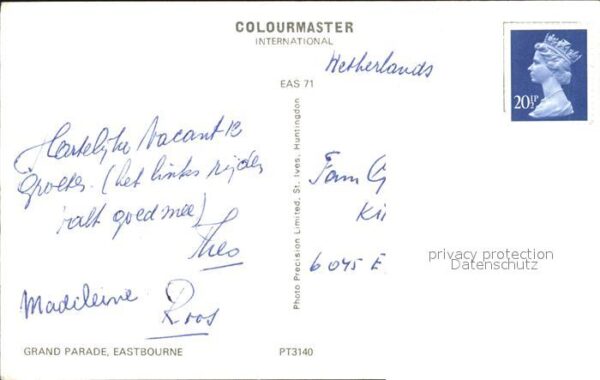 COLOURMASTER
INTERNATIONAL
Netherlands
EAS 71
20½P
Hartelijke Vacantie
Groeten. (het links rijden
valt goed mee)
Theo
Madeleine
Roos
Photo Precision Limited, St. Ives, Huntingdon
Fam G
6045 E
privacy protection
Datenschutz
GRAND PARADE, EASTBOURNE
PT3140